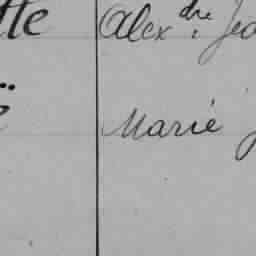 tte Alex.dre Jea
Marie J